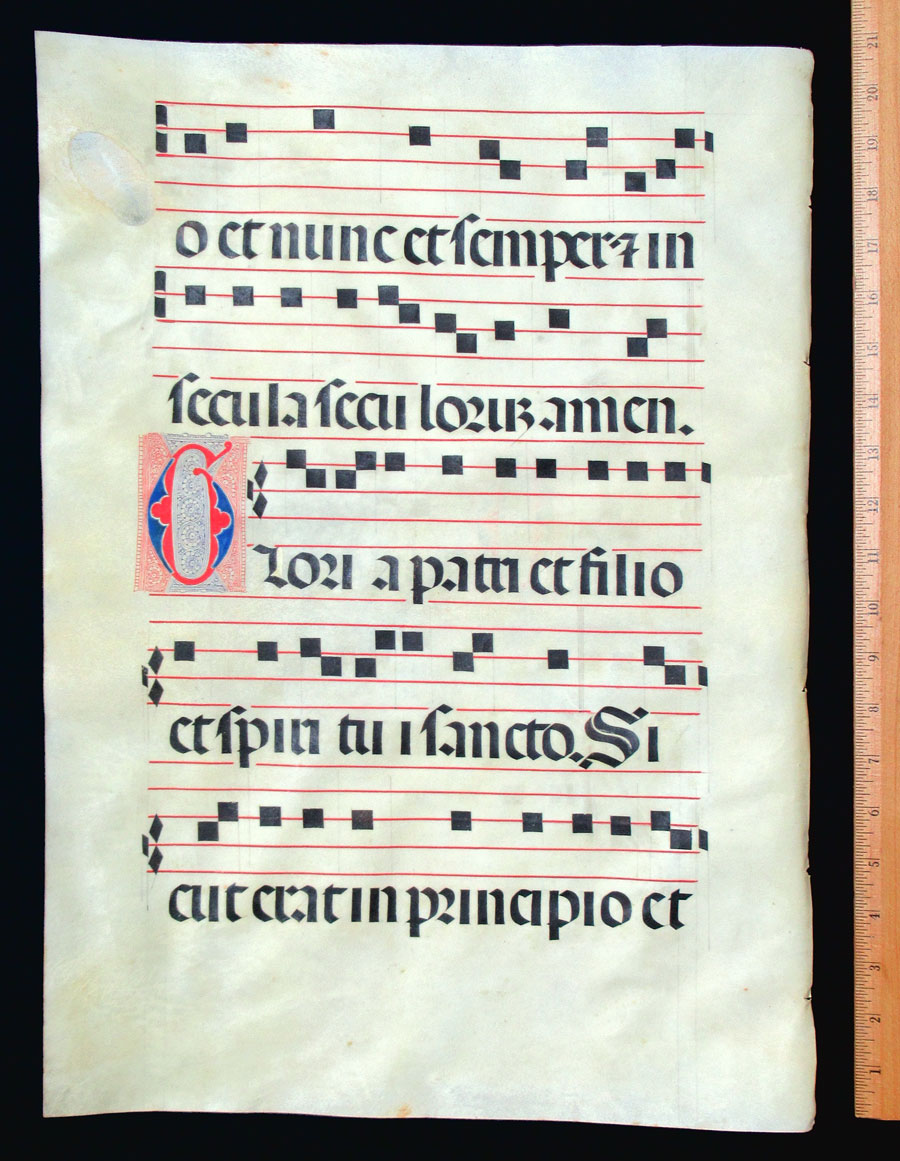 o et nunc et semper ⁊ in
secula seculoruꝫ amen.
Glori a patri et filio
et spiri tu i sancto. Si
cut erat in principio et
21
20
19
18
17
16
15
14
13
12
11
10
9
8
7
6
5
4
3
2
1